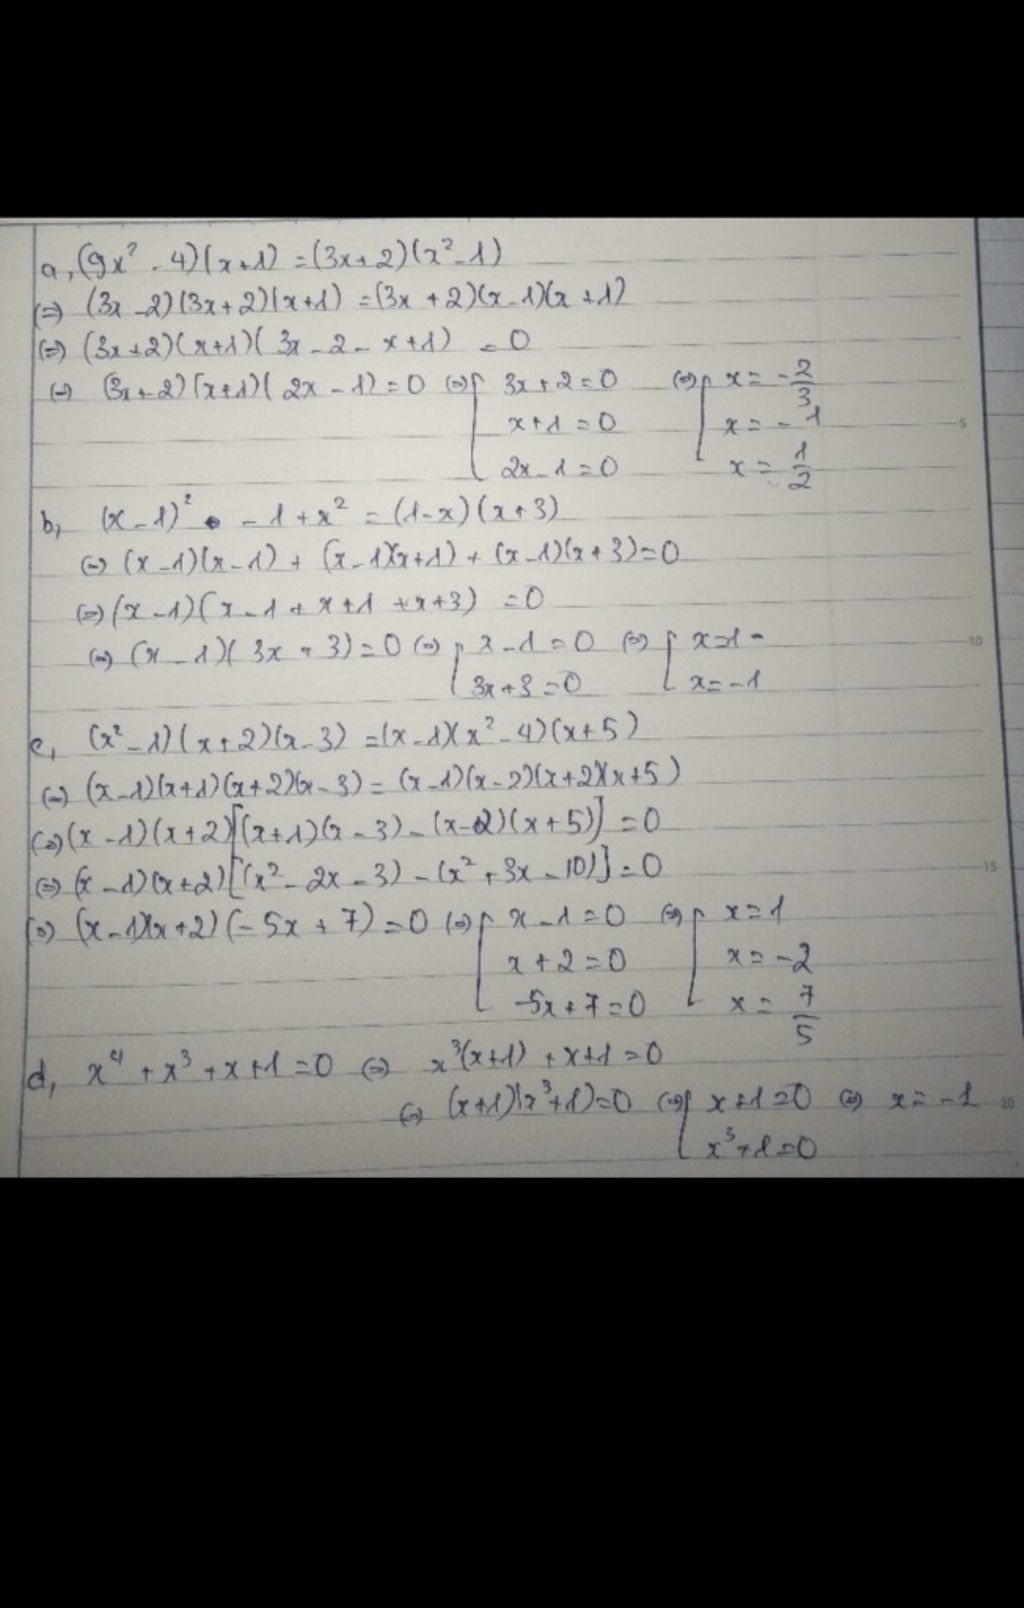 a, (9x² - 4)(x+1) = (3x+2)(x²-1)
(=) (3x-2)(3x+2)(x+1) = (3x+2)(x-1)(x+1)
(=) (3x+2)(x+1)(3x-2-x+1) = 0
(=) (3x+2)(x+1)(2x-1)=0 (=) [ 3x+2=0 (=) [ x = -2/3
x+1=0 x = -1
2x-1=0 x = 1/2
b, (x-1)² - 1 + x² = (1-x)(x+3)
(=) (x-1)(x-1) + (x-1)(x+1) + (x-1)(x+3)=0
(=) (x-1)(x-1+x+1+x+3) = 0
(=) (x-1)(3x+3)=0 (=) [ x-1=0 (=) [ x=1
3x+3=0 x=-1
c, (x²-1)(x+2)(x-3) = (x-1)(x²-4)(x+5)
(=) (x-1)(x+1)(x+2)(x-3) = (x-1)(x-2)(x+2)(x+5)
(=) (x-1)(x+2)[(x+1)(x-3)-(x-2)(x+5)] = 0
(=) (x-1)(x+2)[(x²-2x-3)-(x²+3x-10)]=0
(=) (x-1)(x+2)(-5x+7)=0 (=) [ x-1=0 (=) [ x=1
x+2=0 x=-2
-5x+7=0 x = 7/5
d, x⁴+x³+x+1=0 (=) x³(x+1)+x+1=0
(=) (x+1)(x³+1)=0 (=) [ x+1=0 (=) x=-1
x³+1=0
5
10
15
20